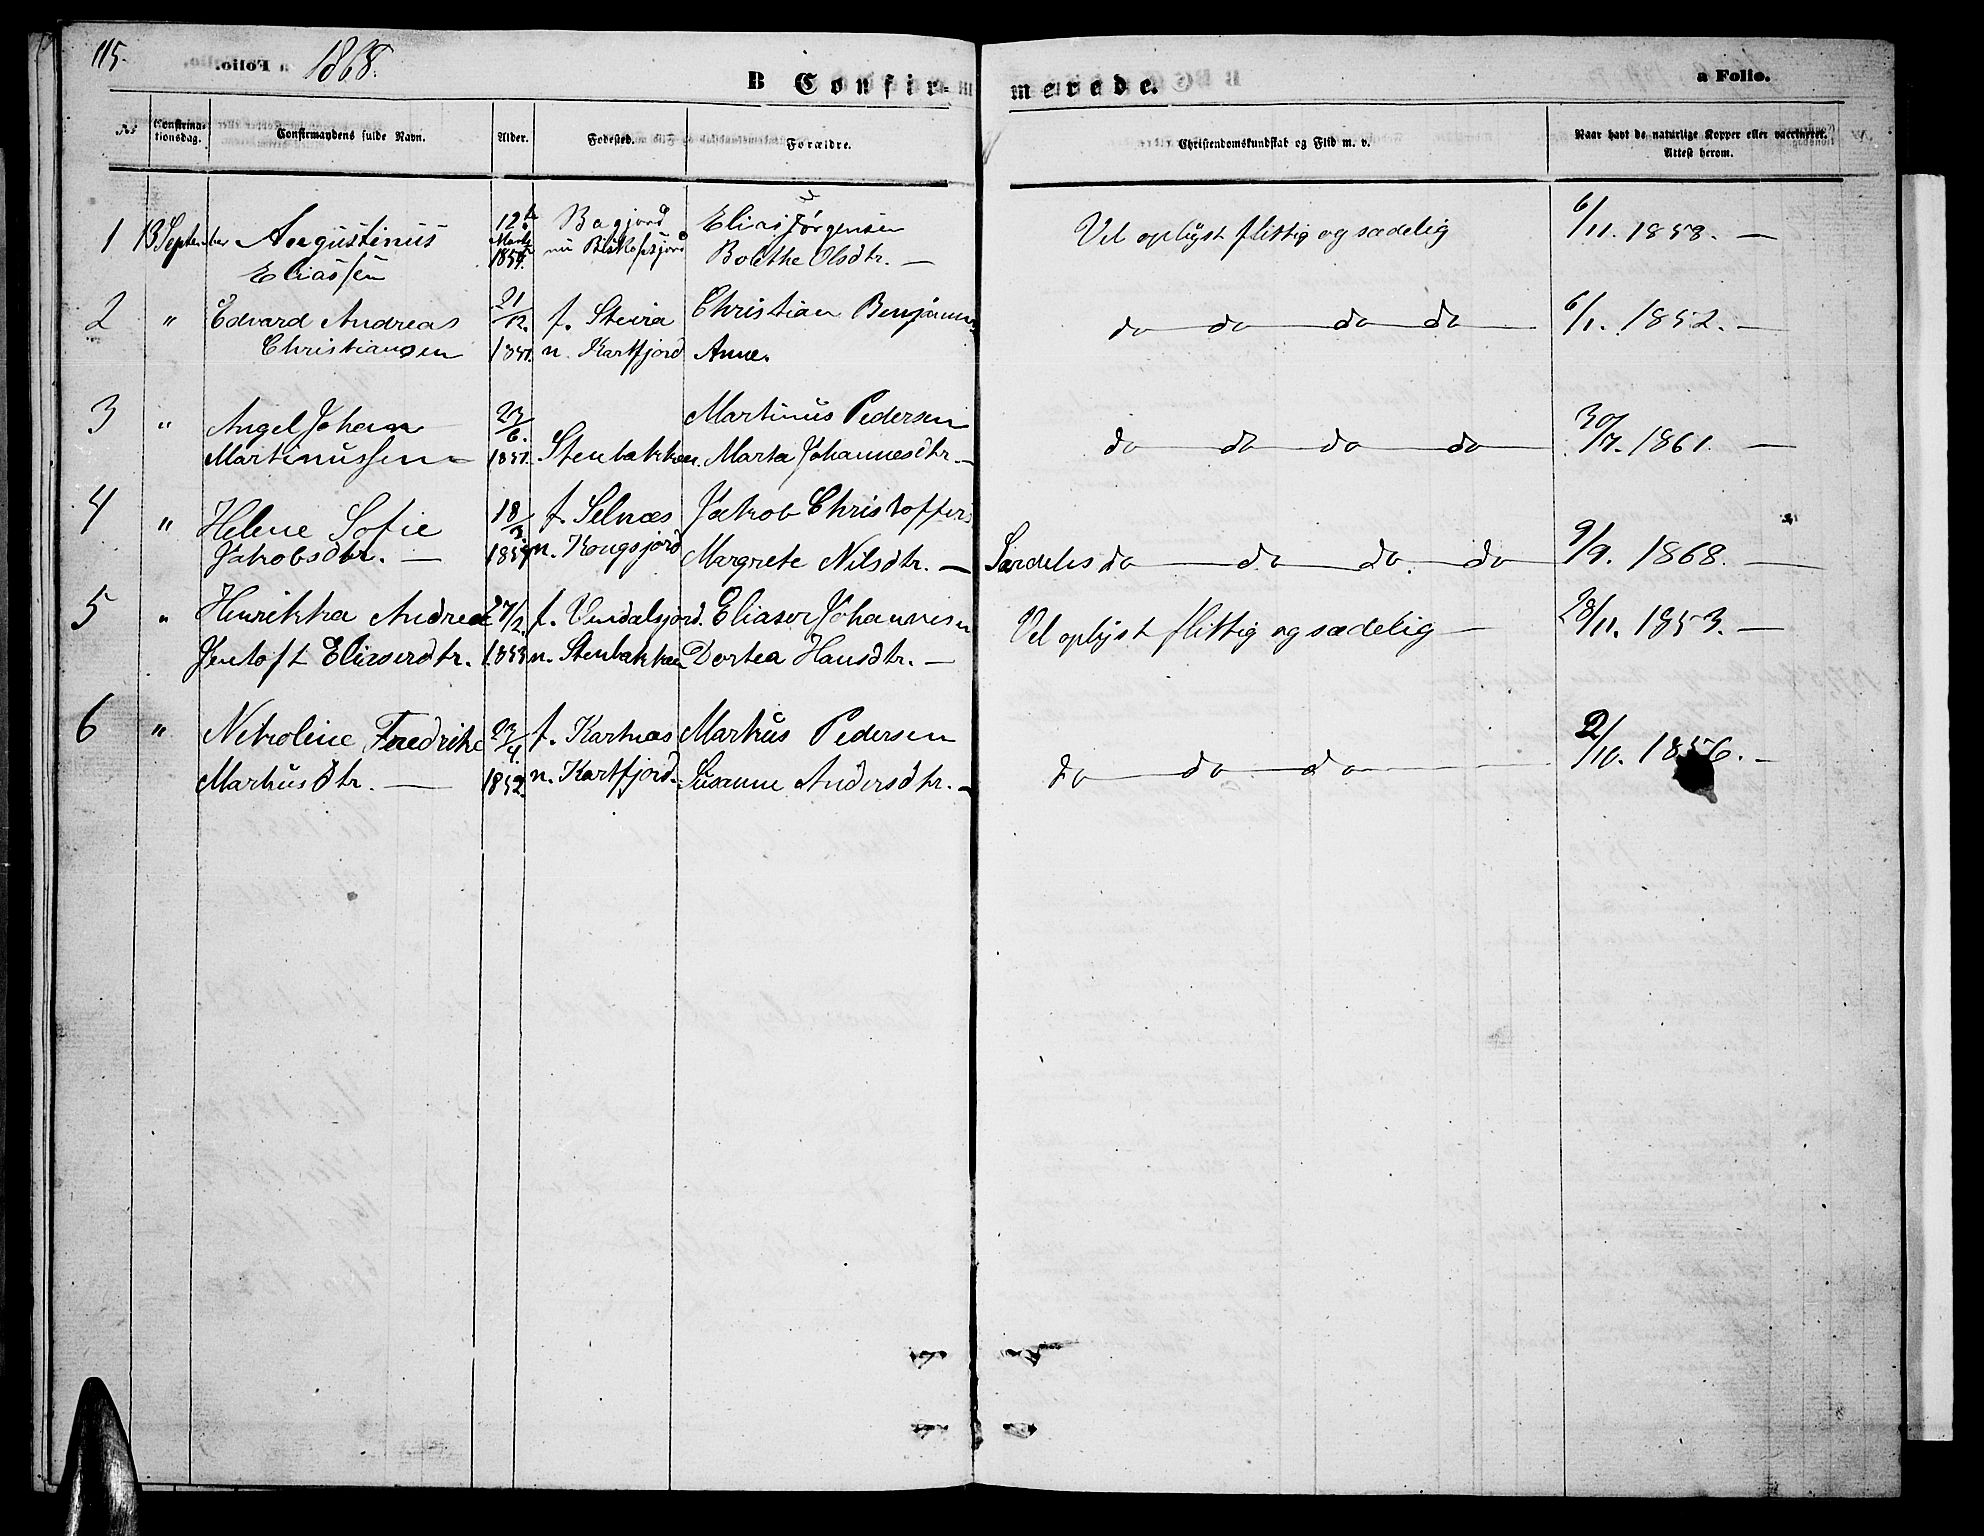 115. 1868. a Folio.
B Confirmerede.
No Konfirmationsdag. Confirmandens fulde Navn. Alder. Fødested. Forældre. Christendomskundskab og Flid m. v. Naar havt de naturlige Kopper eller vaccineret. Attest herom.
1 13 September Augustinus 12te Bagjord Elias Jørgensen Vel oplyst flittig og sædelig 6/11. 1858. —
Eliassen Marts 1854. nu Biskopsjord Bolethe Olsdtr. —
2 " Edvard Andreas 21/12. f. Steira Christian Benjamins do do do do 6/1. 1852. —
Christiansen 1851. n. Kartfjord Anne.
3 " Angel Johan 23/6. Martinus Pedersen do do do do 30/7. 1861. —
Martinussen 1851. Stenbakken. Marta Johannesdtr. —
4 " Helene Sofie 18/3. f. Selnæs Jakob Christoffers
Jakobsdtr. — 1854 n. Kongsjord Margrete Nilsdtr. — Særdeles do do do. do 9/9. 1868. —
5 " Henrikka Andrea 27/2. f. Undalsjord. Eliaser Johannesn Vel oplyst flittig og sædelig — 28/11. 1853. —
Jentoft Eliaserdtr. 1853 n. Stenbakken Dortea Hansdtr. —
6 " Nekoline Fredrike 23/4. f. Kartnæs Markus Pedersen do do do 2/10. 1856. —
Markusdtr. — 1852. n. Kartfjord. Susanne Andersdtr. —